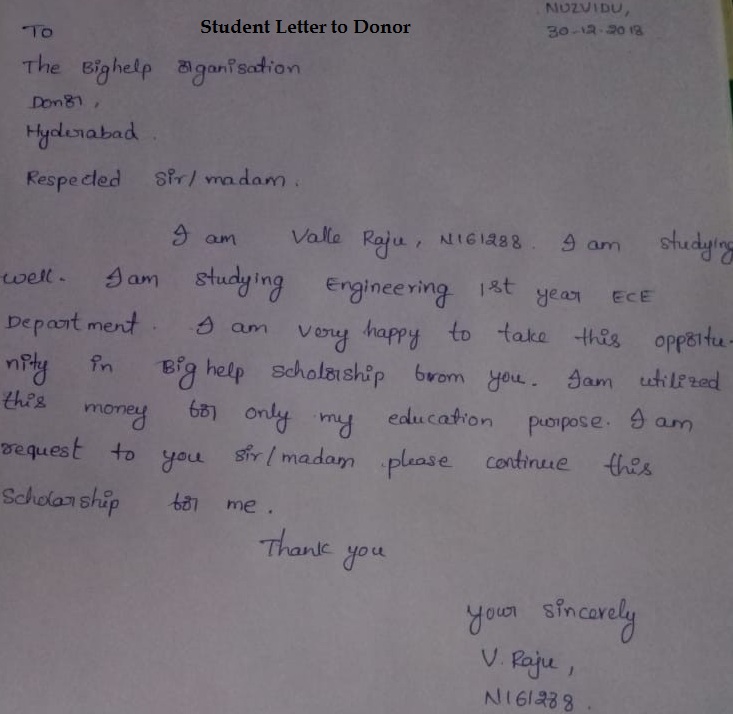 Student Letter to Donor
NUZVIDU,
30-12-2018
To
The Bighelp organisation
Donor,
Hyderabad.
Respected sir/madam.
I am Valle Raju, N161288. I am studying
well. I am studying Engineering 1st year ECE
Department. I am very happy to take this opportu-
nity in Big help scholorship from you. Iam utilized
this money for only my education purpose. I am
request to you sir/madam please continue this
Scholarship for me.
Thank you
your sincerely
V. Raju,
N161288.